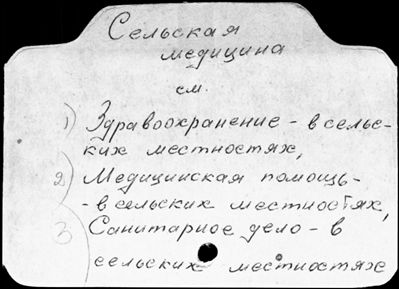 Сельская
медицина
см.
1) Здравоохранение - в сельс-
ких местностях,
2) Медицинская помощь-
- в сельских местностях,
3 Санитарное дело - в
сельских местностях